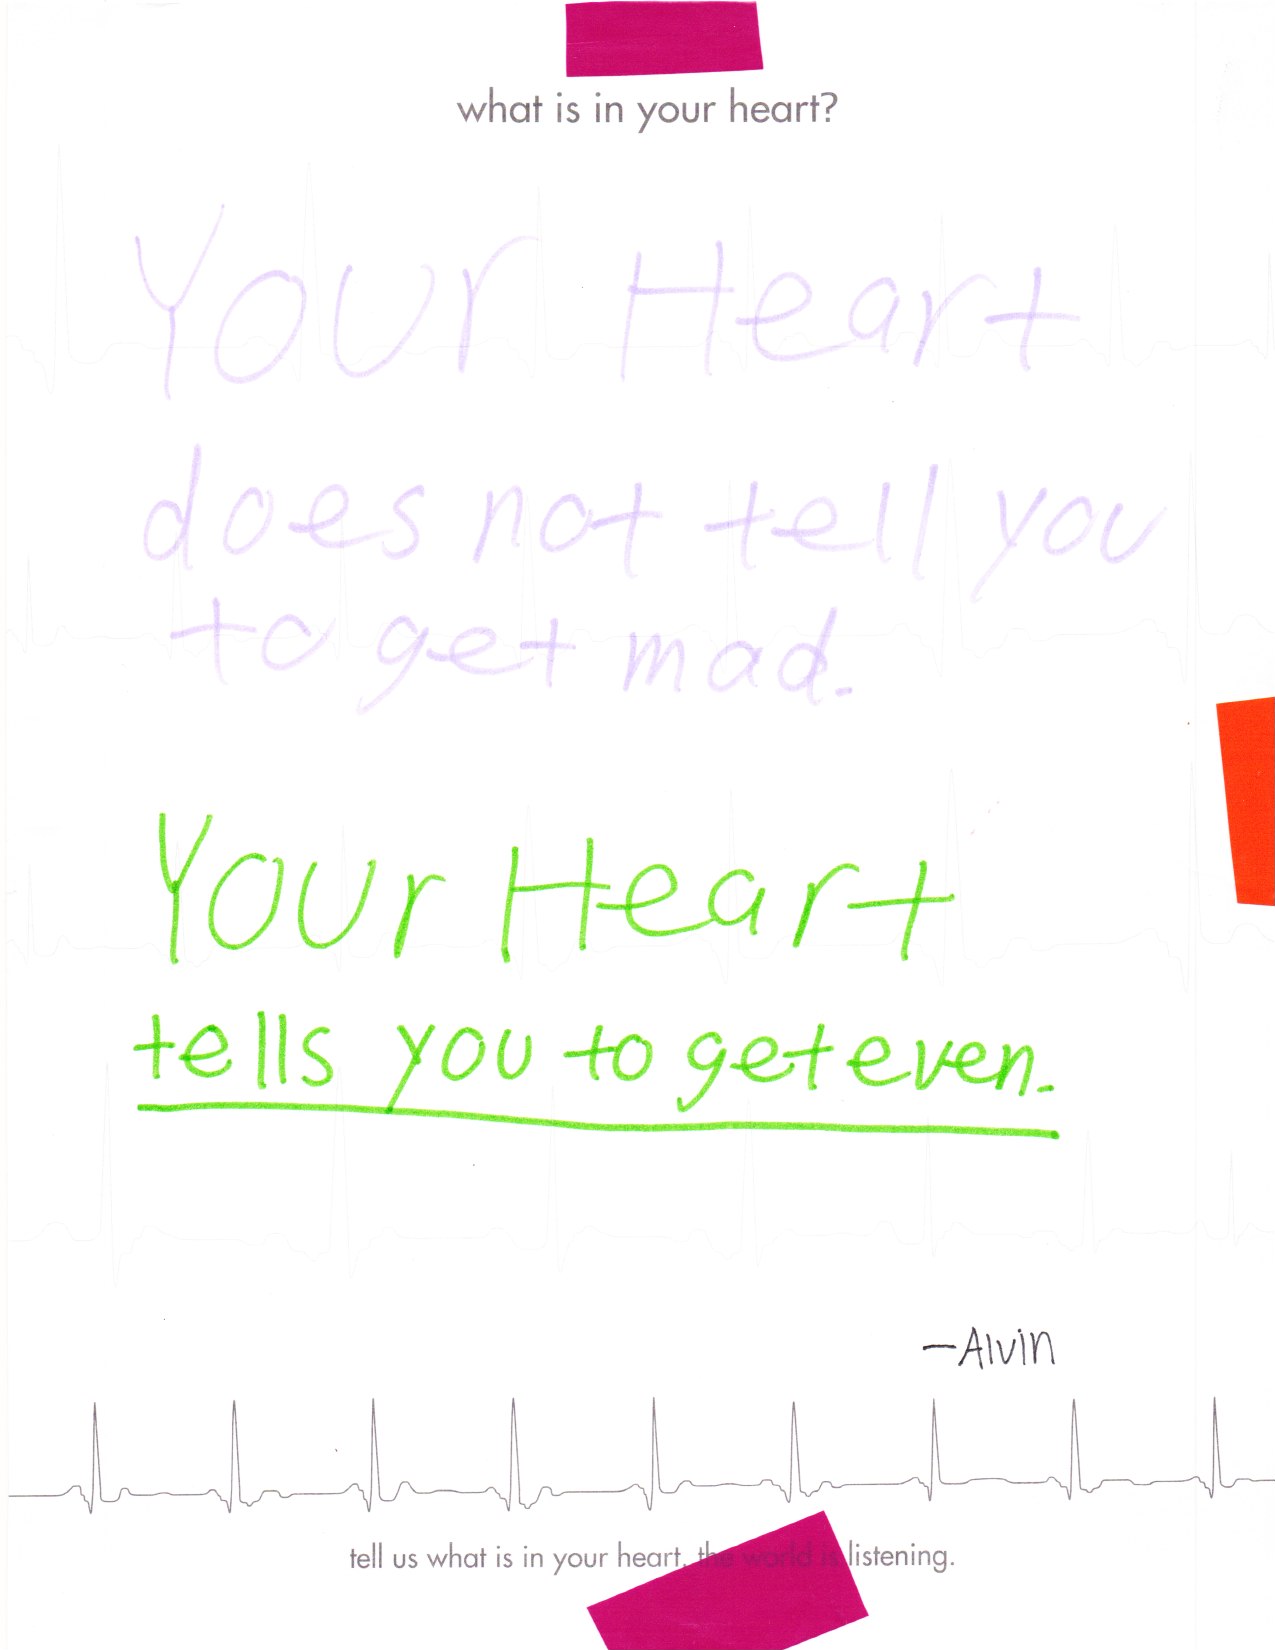 what is in your heart?
Your Heart
does not tell you
to get mad.
Your Heart
tells you to get even.
-Alvin
tell us what is in your heart. the world is listening.